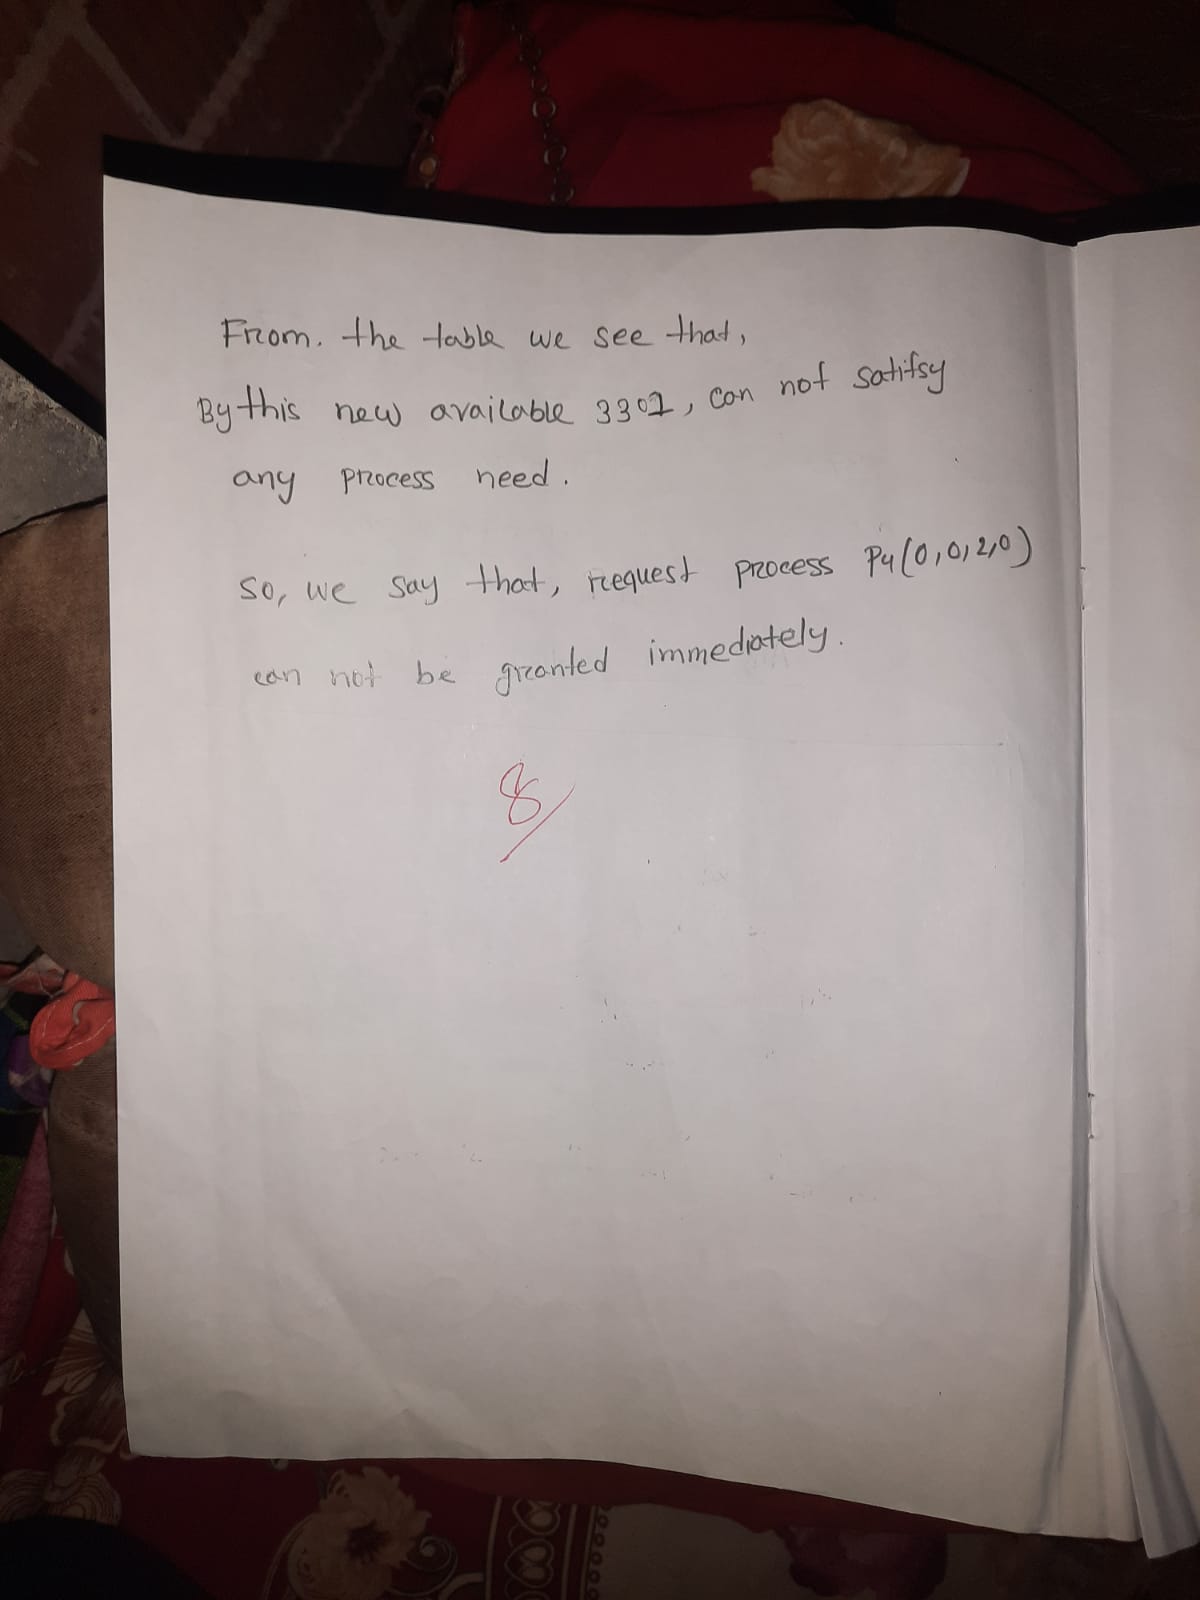 From. the table we see that,
By this new available 3301, can not satifsy
any process need.
So, we say that, request process P4(0,0,2,0)
can not be granted immediately.
8/